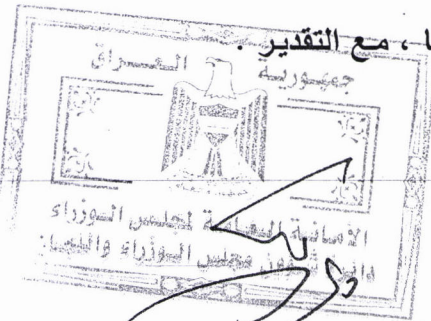 ا ، مع التقدير .
جمهورية العراق
الامانة العامة لمجلس الوزراء
دائرة شؤون مجلس الوزراء واللجان